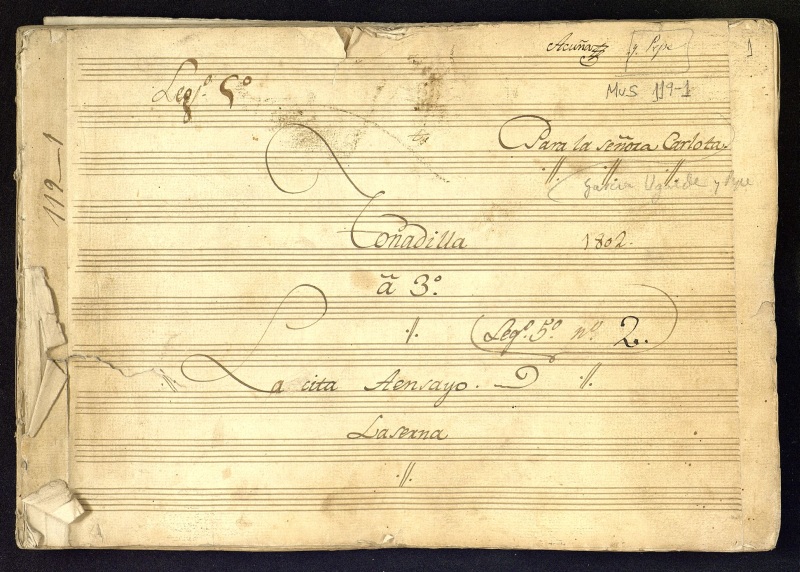 Acuña
1
MUS 119-1
Legº. 5º
119-1
Para la señora Carlota
Garcia Ugalde y Pepe
Toñadilla 1802.
ã 3º.
Legº. 5º. nº. 2.
La cita Aensayo.
Laserna